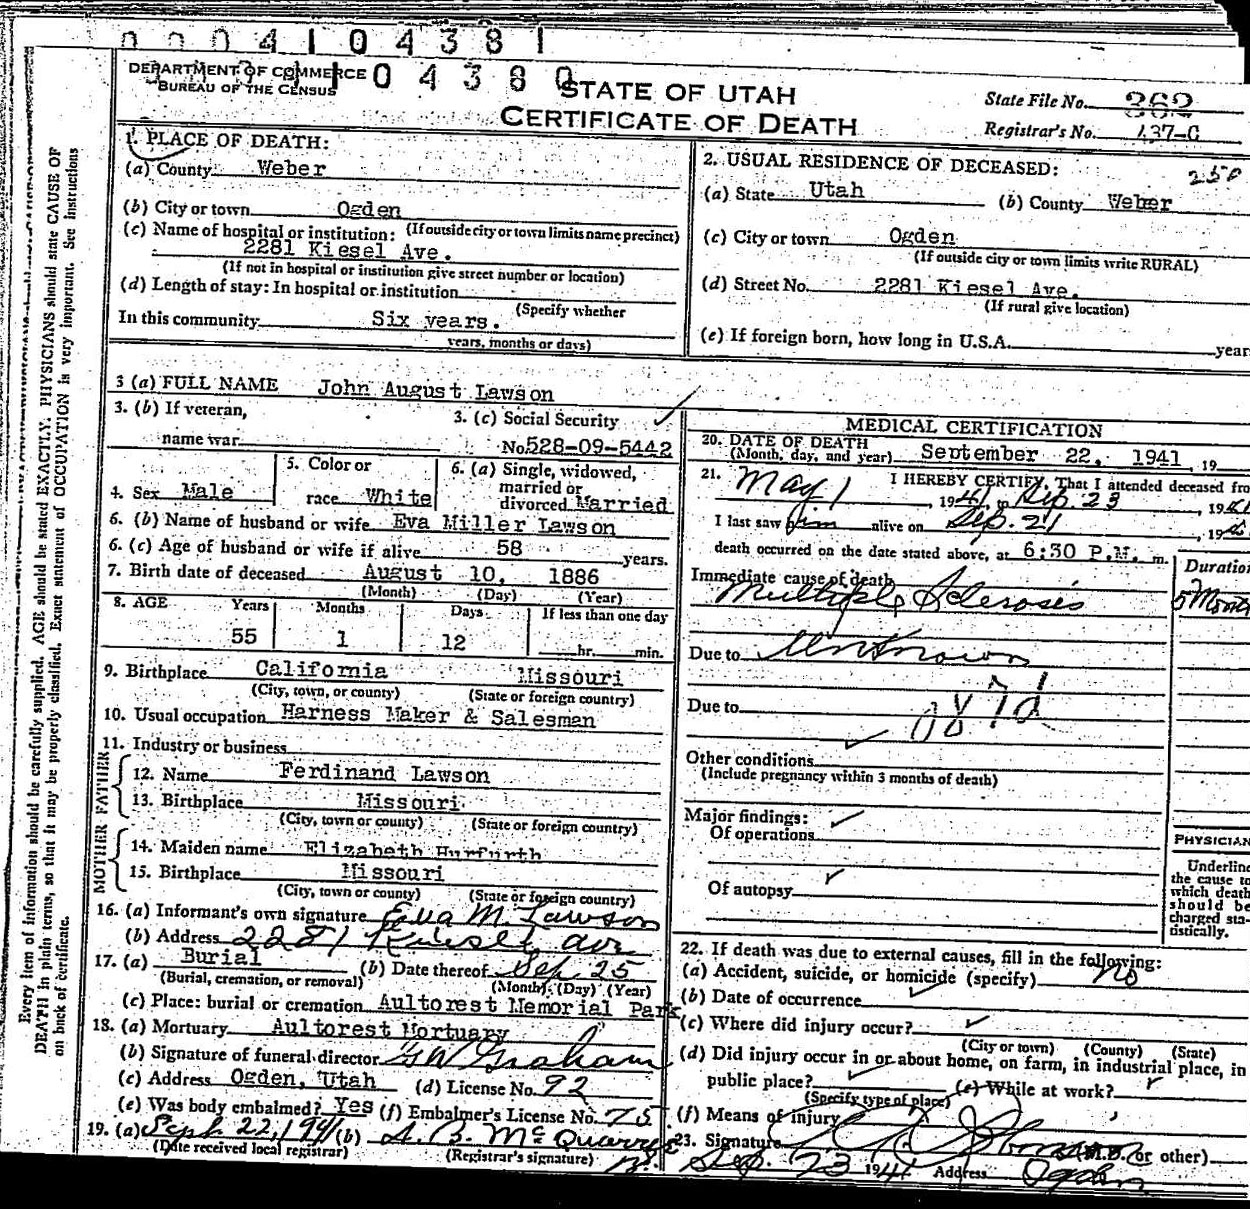 0004104381
04380
DEPARTMENT OF COMMERCE
BUREAU OF THE CENSUS
STATE OF UTAH
CERTIFICATE OF DEATH
State File No. 362
Registrar's No. 137-C
1. PLACE OF DEATH:
(a) County Weber
(b) City or town Ogden
(If outside city or town limits name precinct)
(c) Name of hospital or institution:
2281 Kiesel Ave.
(If not in hospital or institution give street number or location)
(d) Length of stay: In hospital or institution
(Specify whether
In this community Six years.
years, months or days)
2. USUAL RESIDENCE OF DECEASED:
250
(a) State Utah (b) County Weber
(c) City or town Ogden
(If outside city or town limits write RURAL)
(d) Street No. 2281 Kiesel Ave.
(If rural give location)
(e) If foreign born, how long in U.S.A. year
3 (a) FULL NAME John August Lawson
3. (b) If veteran,
name war
3. (c) Social Security
No. 528-09-5442
4. Sex Male
5. Color or
race White
6. (a) Single, widowed,
married or
divorced Married
6. (b) Name of husband or wife Eva Miller Lawson
6. (c) Age of husband or wife if alive 58 years.
7. Birth date of deceased August 10, 1886
(Month) (Day) (Year)
8. AGE Years Months Days If less than one day
55 1 12 hr. min.
9. Birthplace California Missouri
(City, town, or county) (State or foreign country)
10. Usual occupation Harness Maker & Salesman
11. Industry or business
FATHER
12. Name Ferdinand Lawson
13. Birthplace Missouri
(City, town or county) (State or foreign country)
MOTHER
14. Maiden name Elizabeth Hurfurth
15. Birthplace Missouri
(City, town or county) (State or foreign country)
16. (a) Informant's own signature Eva M. Lawson
(b) Address 2281 Kiesel ave
17. (a) Burial (b) Date thereof Sep. 25
(Burial, cremation, or removal) (Month) (Day) (Year)
(c) Place: burial or cremation Aultorest Memorial Park
18. (a) Mortuary Aultorest Mortuary
(b) Signature of funeral director Graham
(c) Address Ogden, Utah (d) License No. 92
(e) Was body embalmed? Yes (f) Embalmer's License No. 75
19. (a) Sept 22, 1941 (b) A. B. McQuarrie
(Date received local registrar) (Registrar's signature)
MEDICAL CERTIFICATION
20. DATE OF DEATH
(Month, day, and year) September 22, 1941, 19
21. I HEREBY CERTIFY, That I attended deceased from
May 1, 1941 to Sep. 23, 1941
I last saw him alive on Sep. 21 19
death occurred on the date stated above, at 6:30 P.M. m.
Immediate cause of death
Duration
Multiple Sclerosis
5 Month
Due to Unknown
Due to
087d
Other conditions
(Include pregnancy within 3 months of death)
Major findings:
Of operations
Of autopsy
PHYSICIAN
Underline
the cause to
which death
should be
charged sta-
tistically.
22. If death was due to external causes, fill in the following:
(a) Accident, suicide, or homicide (specify) no
(b) Date of occurrence
(c) Where did injury occur?
(City or town) (County) (State)
(d) Did injury occur in or about home, on farm, in industrial place, in
public place? (e) While at work?
(Specify type of place)
(f) Means of injury
23. Signature (M.D. or other)
Sep. 23 1941 Address Ogden
Every item of information should be carefully supplied. AGE should be stated EXACTLY. PHYSICIANS should state CAUSE OF
DEATH in plain terms, so that it may be properly classified. Exact statement of OCCUPATION is very important. See Instructions
on back of certificate.